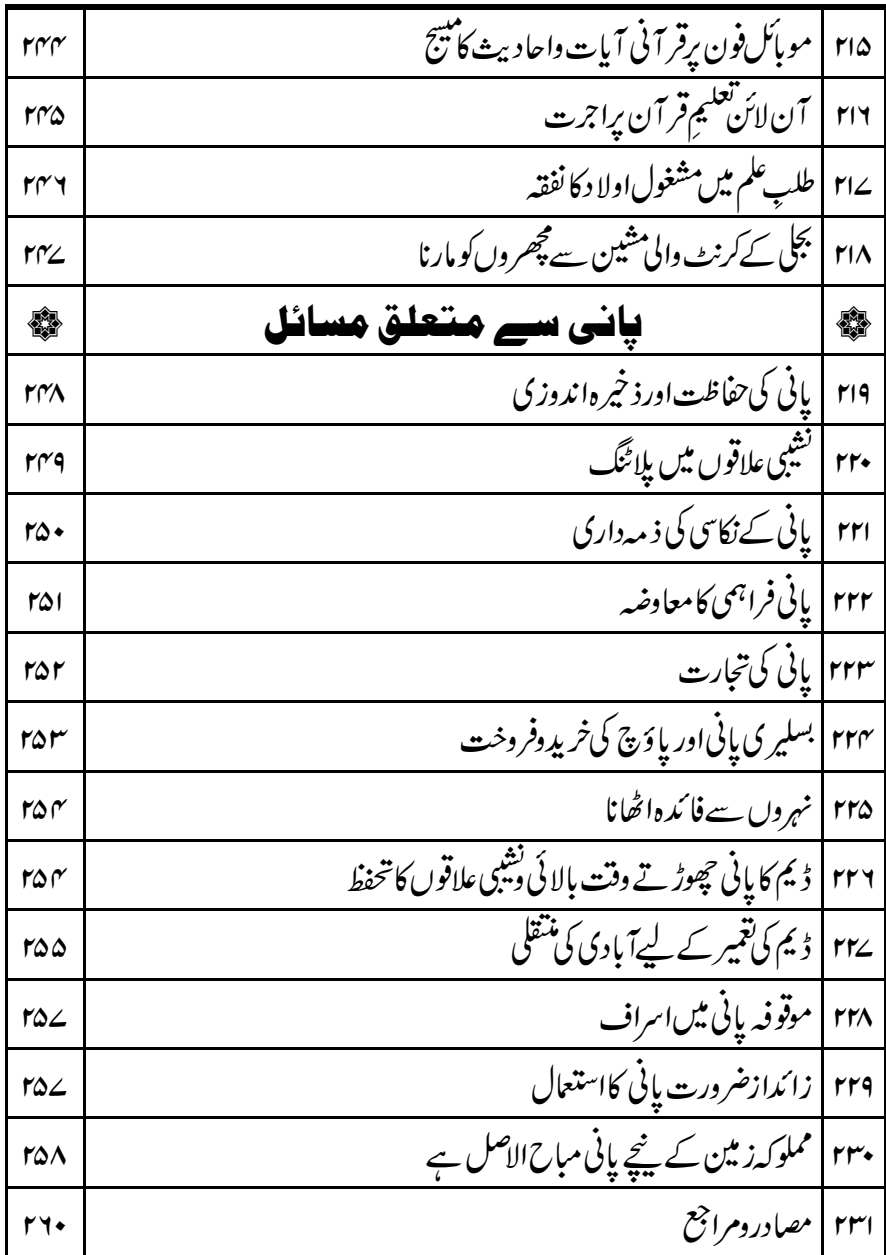 ۲۱۵ موبائل فون پر قرآنی آیات واحادیث کا میسیج ۲۴۴
۲۱۶ آن لائن تعلیمِ قرآن پر اجرت ۲۴۵
۲۱۷ طلبِ علم میں مشغول اولاد کا نفقہ ۲۴۶
۲۱۸ بجلی کے کرنٹ والی مشین سے مچھروں کو مارنا ۲۴۷
پانی سے متعلق مسائل
۲۱۹ پانی کی حفاظت اور ذخیرہ اندوزی ۲۴۸
۲۲۰ نشیبی علاقوں میں پلاٹنگ ۲۴۹
۲۲۱ پانی کے نکاسی کی ذمہ داری ۲۵۰
۲۲۲ پانی فراہمی کا معاوضہ ۲۵۱
۲۲۳ پانی کی تجارت ۲۵۲
۲۲۴ بسلیری پانی اور پاؤچ کی خرید وفروخت ۲۵۳
۲۲۵ نہروں سے فائدہ اٹھانا ۲۵۴
۲۲۶ ڈیم کا پانی چھوڑتے وقت بالائی ونشیبی علاقوں کا تحفظ ۲۵۴
۲۲۷ ڈیم کی تعمیر کے لیے آبادی کی منتقلی ۲۵۵
۲۲۸ موقوفہ پانی میں اسراف ۲۵۷
۲۲۹ زائد از ضرورت پانی کا استعمال ۲۵۷
۲۳۰ مملوکہ زمین کے نیچے پانی مباح الاصل ہے ۲۵۸
۲۳۱ مصادر ومراجع ۲۶۰